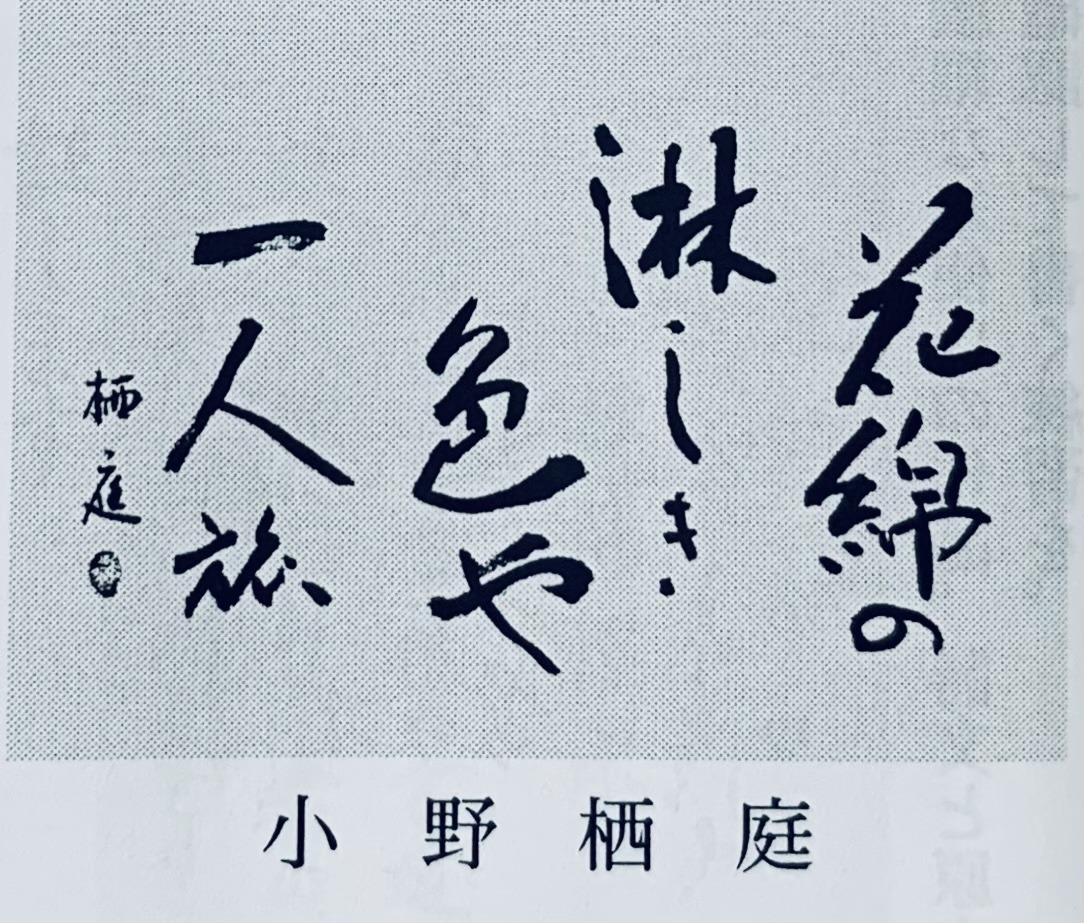 花綿の
淋しき
色や
一人旅
栖庭
小野栖庭